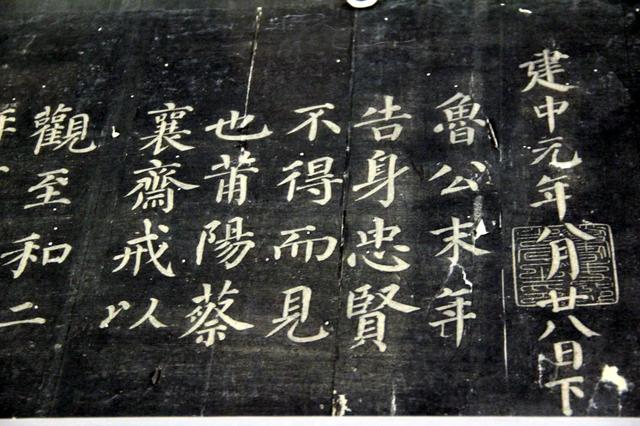 建中元年八月廿八日下
魯公末年
告身忠賢
不得而見
也莆陽蔡
襄齋戒以
觀至和二